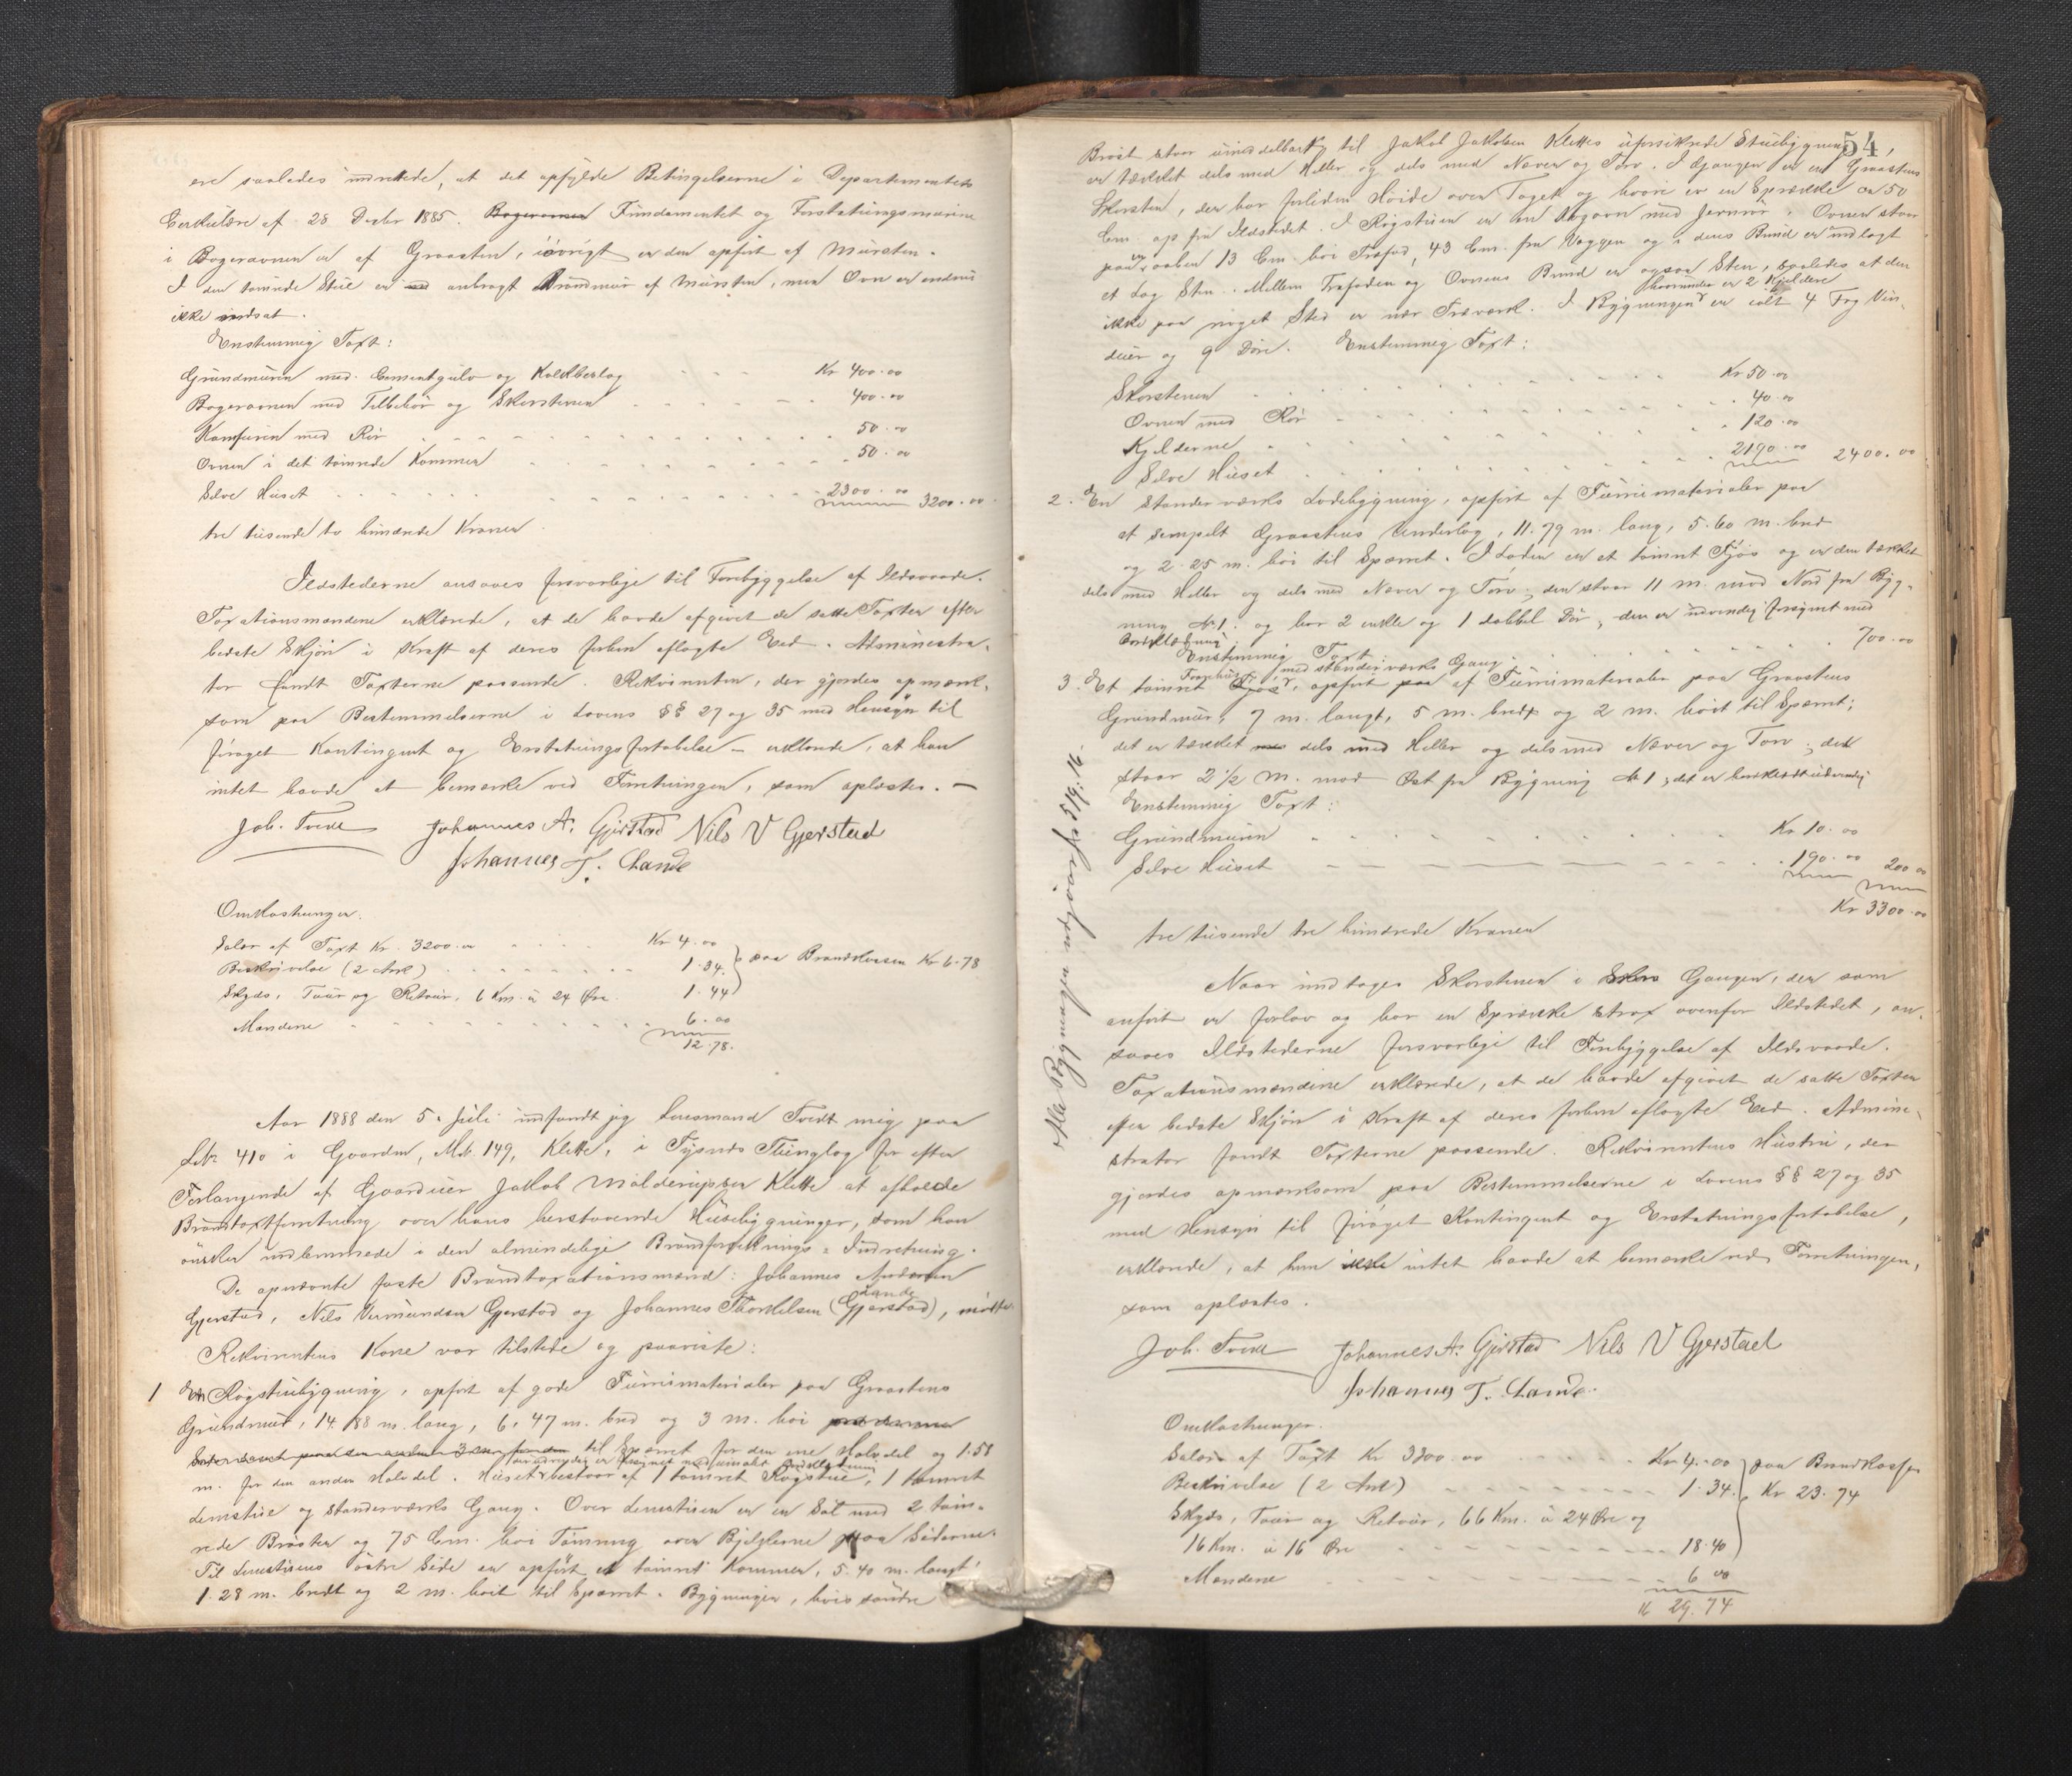 ere saaledes indrettede, at det opfylde Betingelserne i Departementets
Cirkulære af 28 Decbr 1885. Bagerovnen Fundamentet og Forstøtningsmurene
i Bagerovnen er af Graasten, iövrigt er den opfört af Mursten.
I den tömrede Stue er anbragt Brandmur af Mursten, men Ovn er endnu
ikke indsat.
Enstemmig Taxt:
Grundmuren med Cementgulv og Kalkbeslag Kr 400.00
Bagerovnen med Tilbehör og Skorstenen 400.00
Komfuren med Rör 50.00
Ovnen i det tömrede Kammer 50.00
Selve Huset 2300.00 3200.00
tre tusende to hundrede Kroner
Ildstederne ansaaes forsvarlige til Forebyggelse af Ildsvaade.
Taxationsmændene erklærede, at de havde afgivet de satte Taxter efter
bedste Skjön i Kraft af deres forhen aflagte Eed. Administra-
tor fandt Taxterne passende. Rekvirenten, der gjordes opmærk-
som paa Bestemmelserne i Lovens §§ 27 og 35 med Hensyn til
foröget Kontingent og Erstatningsfortabelse – erklærede, at han
intet havde at bemærke ved Forretningen, som oplæstes. –
Joh. Tvedt Johannes A. Gjerstad Nils V Gjerstad
Johannes T. Lande
Omkostninger:
Salær af Taxt Kr. 3200.00 Kr 4.00
Beskrivelse (2 Ark) 1.34 paa Brandkassen Kr 6.78
Skyds, Tour og Retour, 6 Km. à 24 Øre 1.44
Mændene 6.00
12.78.
Aar 1888 den 5. Juli indfandt jeg Lensmand Tvedt mig paa
Lbr 410 i Gaarden, Mt. 149, Klette, i Tysnes Thinglag for efter
Forlangende af Gaardbruger Jakob Mölderupsen Klette at afholde
Brandtaxtforretning over hans herstaaende Husebygninger, som han
önsker indlemmede i den almindelige Brandforsikrings-Indretning.
De opnævnte faste Brandtaxationsmænd: Johannes Andersen
Gjerstad, Nils Vermundsen Gjerstad og Johannes Thorkelsen (Gjerstad) Lande, mödte.
Rekvirentens Kone var tilstede og paaviste:
1 En Rögstuebygning, opfört af gode Furrumaterialer paa Graastens
Grundmur, 14.88 m. lang, 6.47 m. bred og 3 m. höi
til Spærret for den ene Halvdel og 1.58
m. for den anden Halvdel. Huset bestaar af 1 tömret Rögstue, 1 tömret
Lemstue og Standerværks Gang. Over Lemstuen er en Sal med 2 töm-
rede Bröster og 75 Cm. höi Tömring over Bjelkerne paa Siderne.
Til Lemstuens östre Side er opfört et tömret Kammer, 5.40 m. langt
1.28 m. bredt og 2 m. höit til Spærret. Bygningen, hvis söndre
54
Bröst staar umiddelbart til Jakob Jakobsen Klettes uforsikrede Stuebygning,
er tækket dels med Heller og dels med Næver og Torv. I Gangen er en Graastens
Skorsten, der har forliden Höide over Taget og hvori er en Sprække ca 50
Cm. op fra Ildstedet. I Rögstuen er en Kogovn med Jernrör. Ovnen staar
paa en aaben 13 Cm. höi Træfod, 43 Cm. fra Væggen og i dens Bund er indlagt
et Lag Sten. Mellem Træfoden og Ovnens Bund er ogsaa Sten, saaledes at den
ikke paa noget Sted er nær Træværk. I Bygningen, hvorunder er 2 Kjeldere er ialt 4 Fag Vin-
duer og 9 Döre. Enstemmig Taxt:
Skorstenen Kr 50.00
Ovnen med Rör 40.00
Kjelderne 120.00
Selve Huset 2190.00 2400.00
2. En Standerværks Ladebygning, opfört af Furrumaterialer paa
et simpelt Graastens Underlag, 11.79 m. lang, 5.60 m. bred
og 2.25 m. höi til Spærret. I Laden er et tömret Fjös og er den tækket
dels med Heller og dels med Næver og Torv; den staar 11 m. mod Nord fra Byg-
ning No 1. og har 2 enkle og 1 dobbel Dör, den er udvendig forsynet med
Bordklædning.
Enstemmig Taxt 700.00
3. Et tömret Faarehus med Standerværks Gang, opfört af Furrumaterialer paa Graastens
Grundmur, 7 m. langt, 5 m. bredt og 2 m. höit til Spærret;
det er tækket dels med Heller og dels med Næver og Torv; det
staar 2 1/2 m. mod Öst fra Bygning No 1; det er bordklædt udvendig
Enstemmig Taxt:
Grundmuren Kr 10.00
Selve Huset 190.00 200.00
Kr 3300.00
tre tusende tre hundrede Kroner
Naar undtages Skorstenen i Gangen, der som
anfört er forlav og har en Sprække strax ovenfor Ildstedet, an-
saaes Ildstederne forsvarlige til Forebyggelse af Ildsvaade.
Taxationsmændene erklærede, at de havde afgivet de satte Taxter
efter bedste Skjön i Kraft af deres forhen aflagte Eed. Admini-
strator fandt Taxterne passende. Rekvirentens Hustru, der
gjordes opmærksom paa Bestemmelserne i Lovens §§ 27 og 35
med Hensyn til foröget Kontingent og Erstatningsfortabelse,
erklærede, at hun ikke intet havde at bemærke ved Forretningen,
som oplæstes.
Joh. Tvedt Johannes A. Gjerstad Nils V Gjerstad
Johannes T. Lande.
Omkostninger.
Salær af Taxt Kr 3300.00 Kr 4.00 paa Brandkassen
Beskrivelse (2 Ark) 1.34. Kr 23.74
Skyds, Tour og Retour, 66 Km. à 24 Øre og
16 Km. à 16 Øre 18.40
Mændene 6.00
Kr 29.74